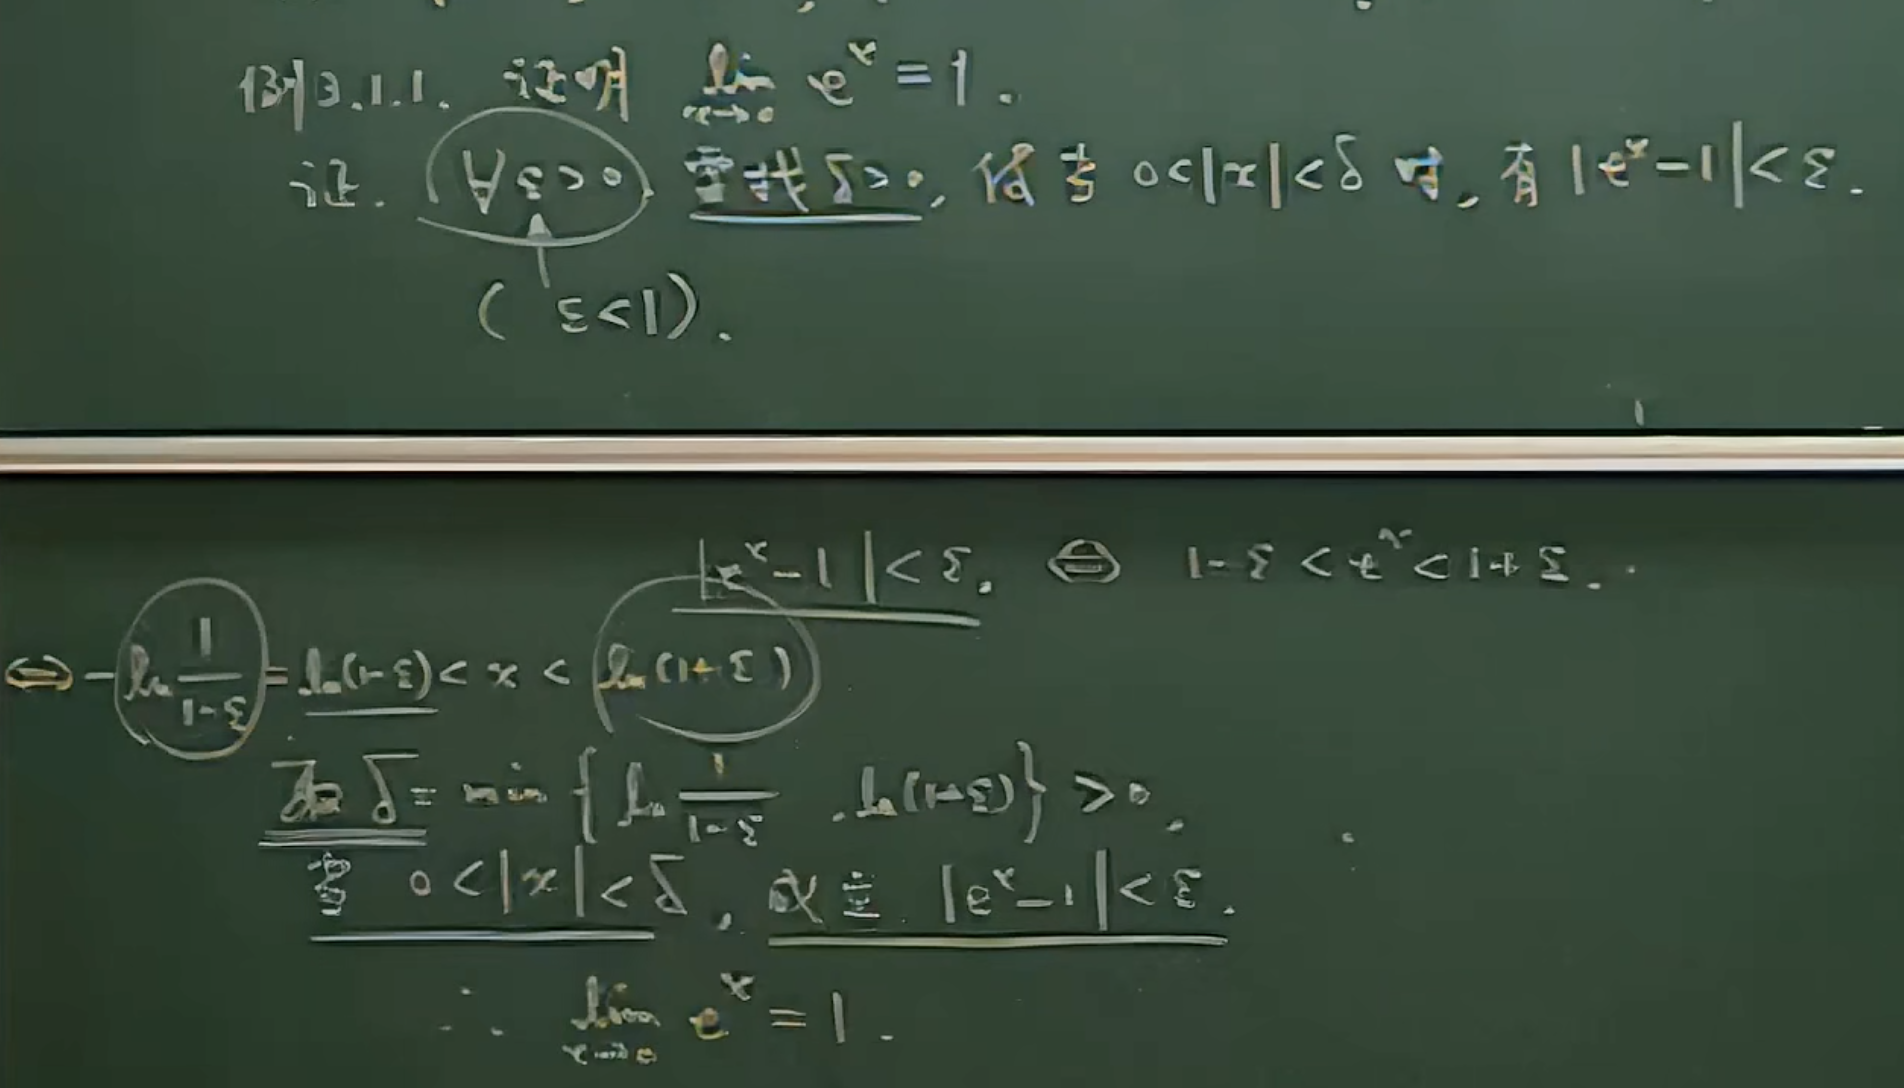 例3.1.1. 证明 lim_{x→0} e^x = 1.
证. ∀ε>0, 寻找 δ>0, 使当 0<|x|<δ 时, 有 |e^x-1|<ε.
(ε<1).
|e^x-1|<ε. ⇔ 1-ε<e^x<1+ε.
⇔ -ln 1/(1-ε) = ln(1-ε) < x < ln(1+ε)
取 δ = min{ln 1/(1-ε), ln(1+ε)} >0,
当 0<|x|<δ, 成立 |e^x-1|<ε.
∴ lim_{x→0} e^x = 1.